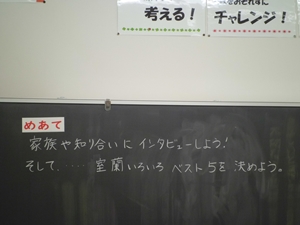 おそれずに
考える！
チャレンジ！
めあて
家族や知り合いにインタビューしよう！
そして、‥‥‥室蘭いろいろベスト5を決めよう。